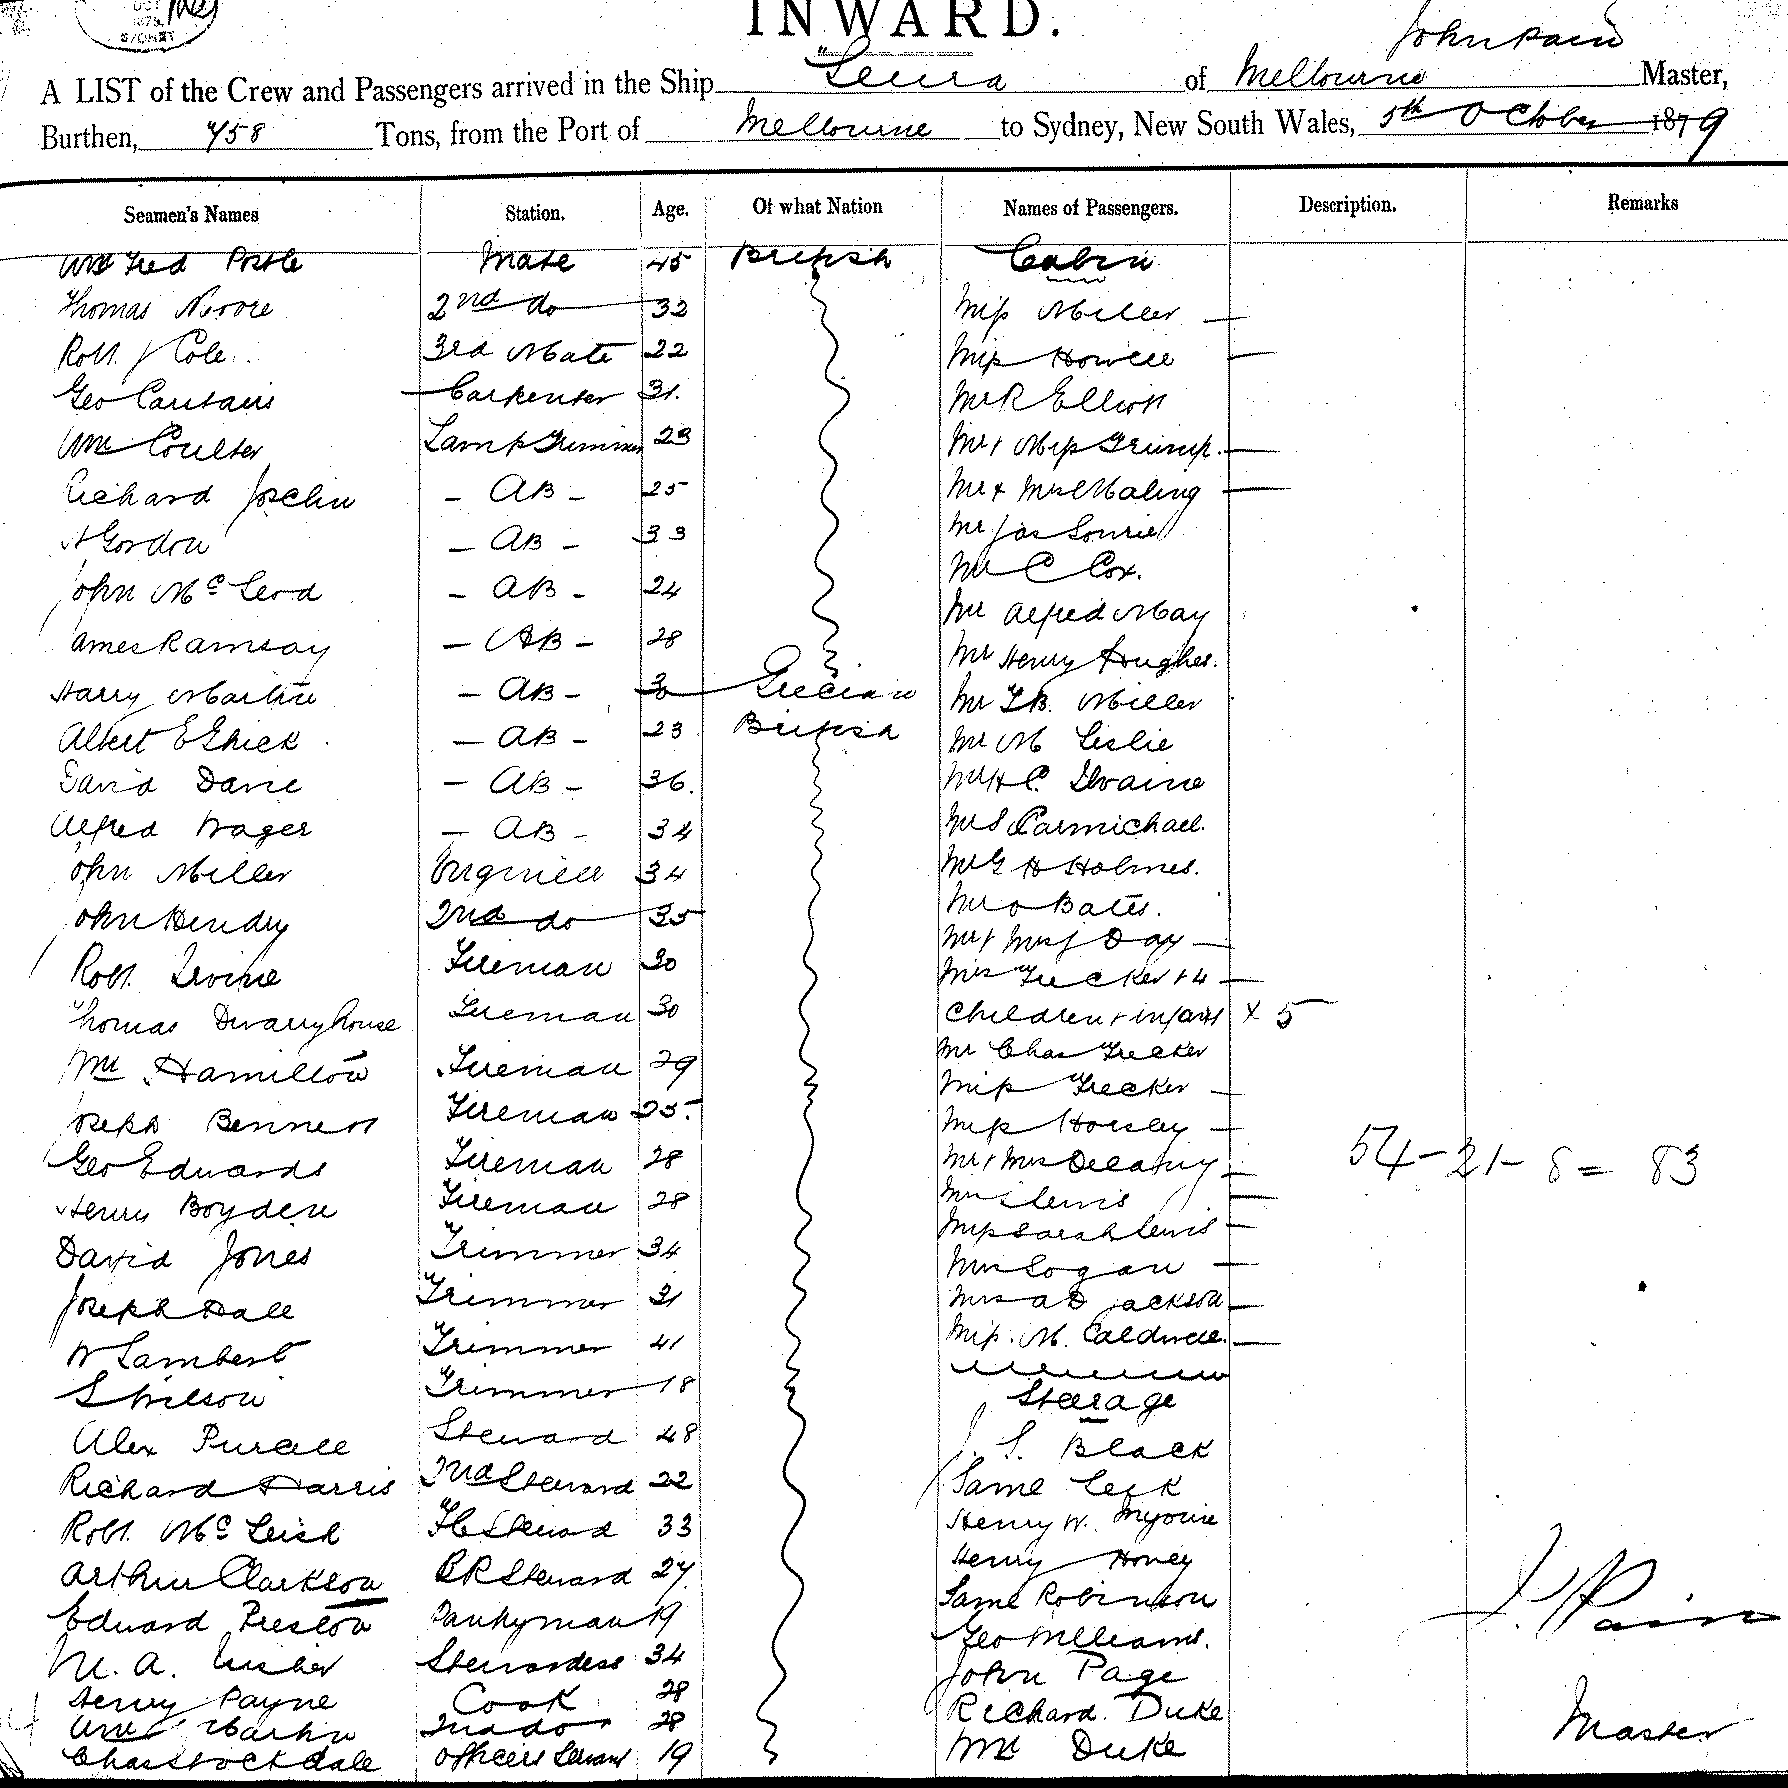 SYDNEY
INWARD.
John Pain
A LIST of the Crew and Passengers arrived in the Ship "Leura of Melbourne Master,
Burthen, 458 Tons, from the Port of Melbourne to Sydney, New South Wales, 5th October 1879
Seamen's Names Station. Age. Of what Nation Names of Passengers. Description. Remarks
Wm Fred Postle Mate 45 British Cabin
Thomas Moore 2nd do 32 Miss Miller —
Robt. J Cole 3rd Mate 22 Miss Howell —
Geo Carpenter 31. Mr R Elliott
Wm Coulter Lamp Trimmer 23 Mr & Miss Trump. —
Richard Joclin - AB - 25 Mr & Mrs Maling —
A Gordon - AB - 33 Mr Jas Lourie
John McLeod - AB - 24 Mr C Cox.
James Ramsay - AB - 28 Mr Alfred May
Harry Martin - AB - 30 Grecian Mr Henry Hughes.
Albert E - AB - 23 British Mr T.B. Miller
David Davie - AB - 36. Mr M Leslie
Alfred Wager - AB - 34 Mr H C.
John Miller Engineer 34 Mr S Carmichael.
John Hendry 2nd do 35 Mr G H Holmes.
Robt. Irvine Fireman 30 Mr O Bates.
Thomas Dwarryhouse Fireman 30 Mr & Mrs J Day —
Wm Hamilton Fireman 29 Mrs Trecker & 4 —
Joseph Bennett Fireman 25. Children & infant x 5
Geo Edwards Fireman 28 Mr Chas Trecker
Henry Boyden Fireman 28 Miss Trecker —
David Jones Trimmer 34 Miss Horsley —
Joseph Dale Trimmer 31 Mr & Mrs Delaney —
54 - 21 - 8 = 83
W Lambert Trimmer 41 Mrs Lewis —
S Wilson Trimmer 18 Miss Sarah Lewis —
Alex Purcell Steward 48 Mrs Logan —
Richard Harris 2nd Steward 22 Mrs A D Jackson —
Robt. McLeish Steward 33 Miss. M. Caldwell. —
Arthur Clarkson BR Steward 27 Steerage
Edward Preston Pantryman 19 J. S. Black
M. A. Stewardess 34 Same
Henry Payne Cook 28 Henry W.
Wm Martin 2nd do 28 Henry Honey
Chas Stockdale Officers Servant 19 Same Robinson
Geo Williams.
John Page
Richard Duke
Mr Duke
J. Pain
Master